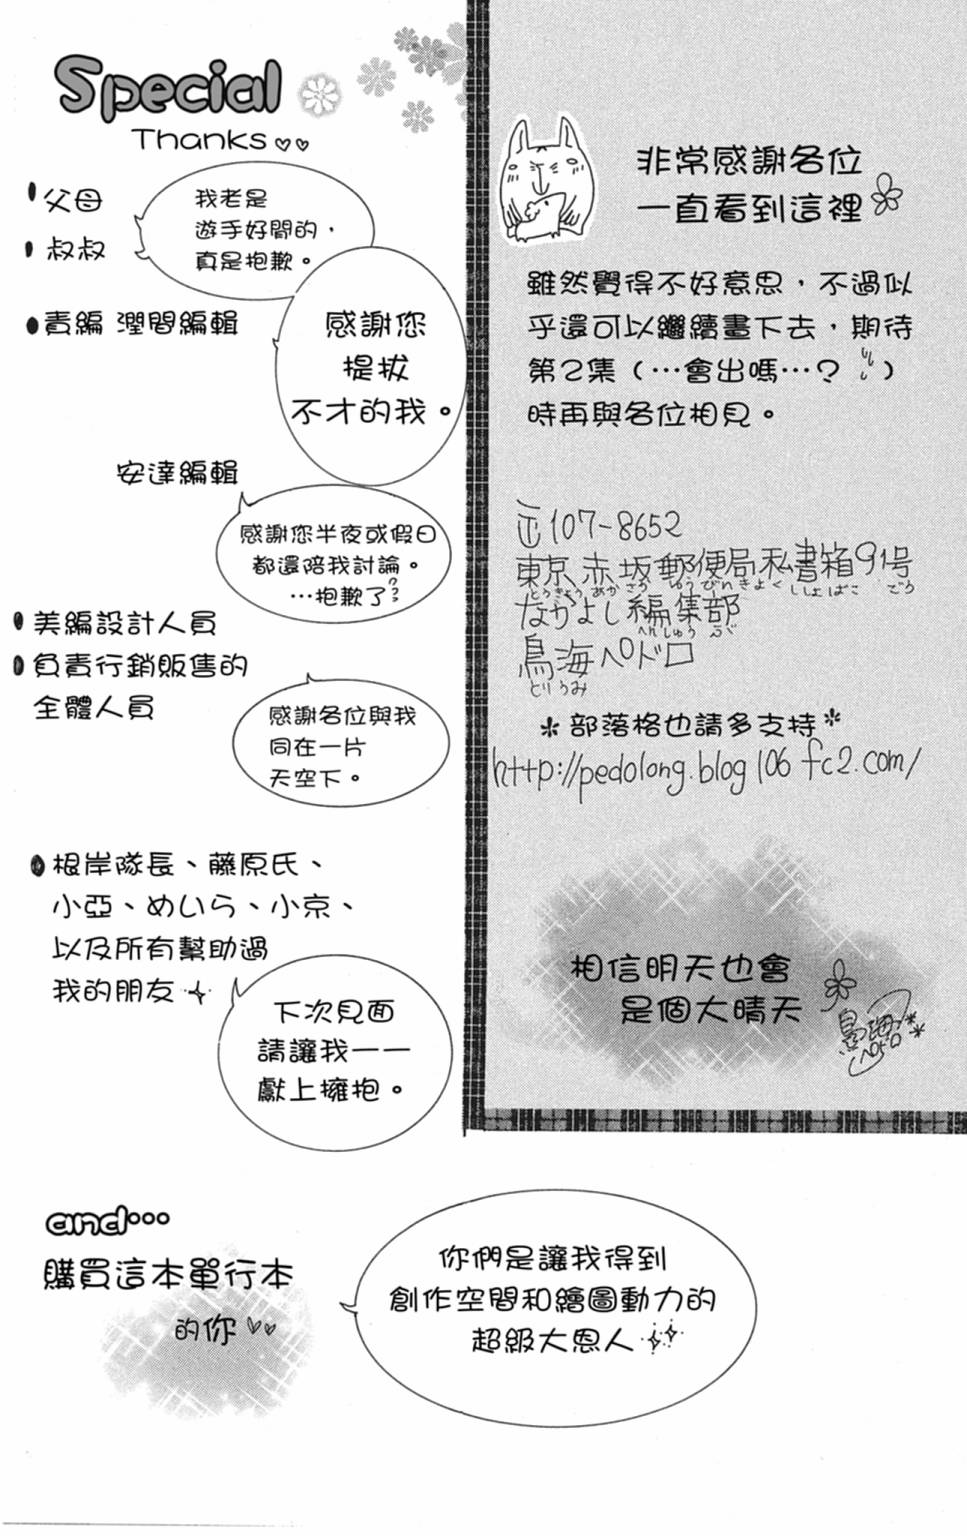 非常感謝各位
一直看到這裡
雖然覺得不好意思，不過似
乎還可以繼續畫下去，期待
第2集（…會出嗎…？）
時再與各位相見。
〒107-8652
東京 赤坂郵便局私書箱91号
とうきょう あかさか ゆうびんきょく ししょばこ ごう
なかよし編集部
へんしゅう ぶ
鳥海ペドロ
とりうみ
＊部落格也請多支持＊
http://pedolong.blog106.fc2.com/
相信明天也會
是個大晴天
鳥海ペドロ
Special
Thanks♡♡
父母
叔叔
我老是
遊手好閒的，
真是抱歉。
●責編 潤間編輯
感謝您
提拔
不才的我。
安達編輯
感謝您半夜或假日
都還陪我討論。
…抱歉了？
●美編設計人員
●負責行銷販售的
全體人員
感謝各位與我
同在一片
天空下。
●根岸隊長、藤原氏、
小亞、めいら、小京、
以及所有幫助過
我的朋友
下次見面
請讓我一一
獻上擁抱。
and…
購買這本單行本
的你♡♡
你們是讓我得到
創作空間和繪圖動力的
超級大恩人